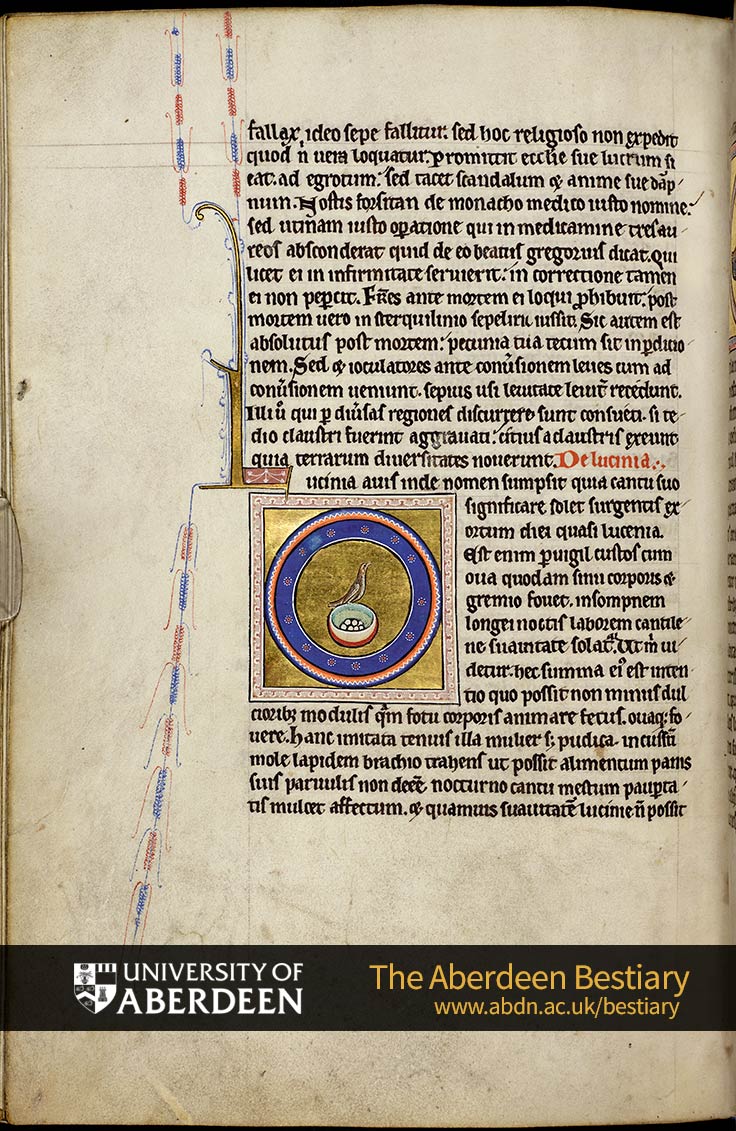 fallax, ideo sepe fallitur. sed hoc religioso non expedit
quod n̄ uera loquatur. promittit ecclĩe sue lucrum si
eat. ad egrotum. sed tacet scandalum & anime sue dāp-
num. Nostis forsitan de monacho medico iusto nomine.
sed utinam iusto operatione qui in medicamine tres au-
reos absconderat quid de eo beatus gregorius dicat. Qui
licet ei in infirmitate seruierit. in correctione tamen
ei non pepercit. Fr̄es ante mortem ei loqui ꝓhibuit. post
mortem uero in sterquilinio sepeliri iussit. Sic autem est
absolutus post mortem. pecunia tua tecum sit in ꝑditio
nem. Sed & ioculatores ante conũsionem leues cum ad
conũsionem ueniunt. sepius usi leuitate leuit̾ recedunt.
Illi ũ qui ꝑ diũsas regiones discurrere sunt consueti. si te-
dio claustri fuerint aggrauati. citius a claustris exeunt
quia terrarum diuersitates nouerunt. De lucinia.
Lucinia auis inde nomen sumpsit quia cantu suo
significare solet surgentis ex-
ortum diei quasi lucenia.
Est enim ꝑuigil custos cum
oua quodam sinu corporis &
gremio fouet. insompnem
longei noctis laborem cantile-
ne suauitate solat̾. Ut m̄ ui-
detur. hec summa ei᷒ est inten
tio quo possit non minus dul
cioribꝫ modulis q̄m fotu corporis animare fetus. ouaqꝫ fo-
uere. Hanc imitata tenuis illa mulier sꝫ pudica. incussū
mole lapidem brachio trahens ut possit alimentum panis
suis paruulis non deeē. nocturno cantu mestum pauꝑta-
tis mulcet affectum. & quamuis suauitatē lucinie n̄ possit
UNIVERSITY OF
ABERDEEN
The Aberdeen Bestiary
www.abdn.ac.uk/bestiary